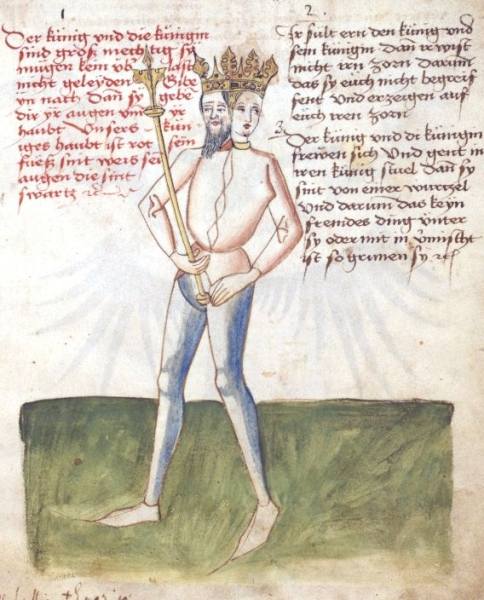 1
Der künig vnd die künigin
sind gros mechtig sy
mügen kein vb last
nicht geleyden Gibe
vn nach Dan sy gebe
dir yr augen vm yr
haubt Vnsers kün
iges haubt ist rot sein
fueß sint weis sei
augen die sint
swartz
2.
Ir sult ern den künig vnd
sein künigin dan ir wist
nicht iren zorn darum
das sy euch nicht begreif
fent vnd erzeigen auf
euch iren zorn
3
Der künig vnd di künigin
frewen sich vnd gent in
iren künig stuel dan sy
sint von einer wurtzel
vnd darum das keyn
fremdes ding vnter
sy oder mit in vmischt
ist so grimen sy